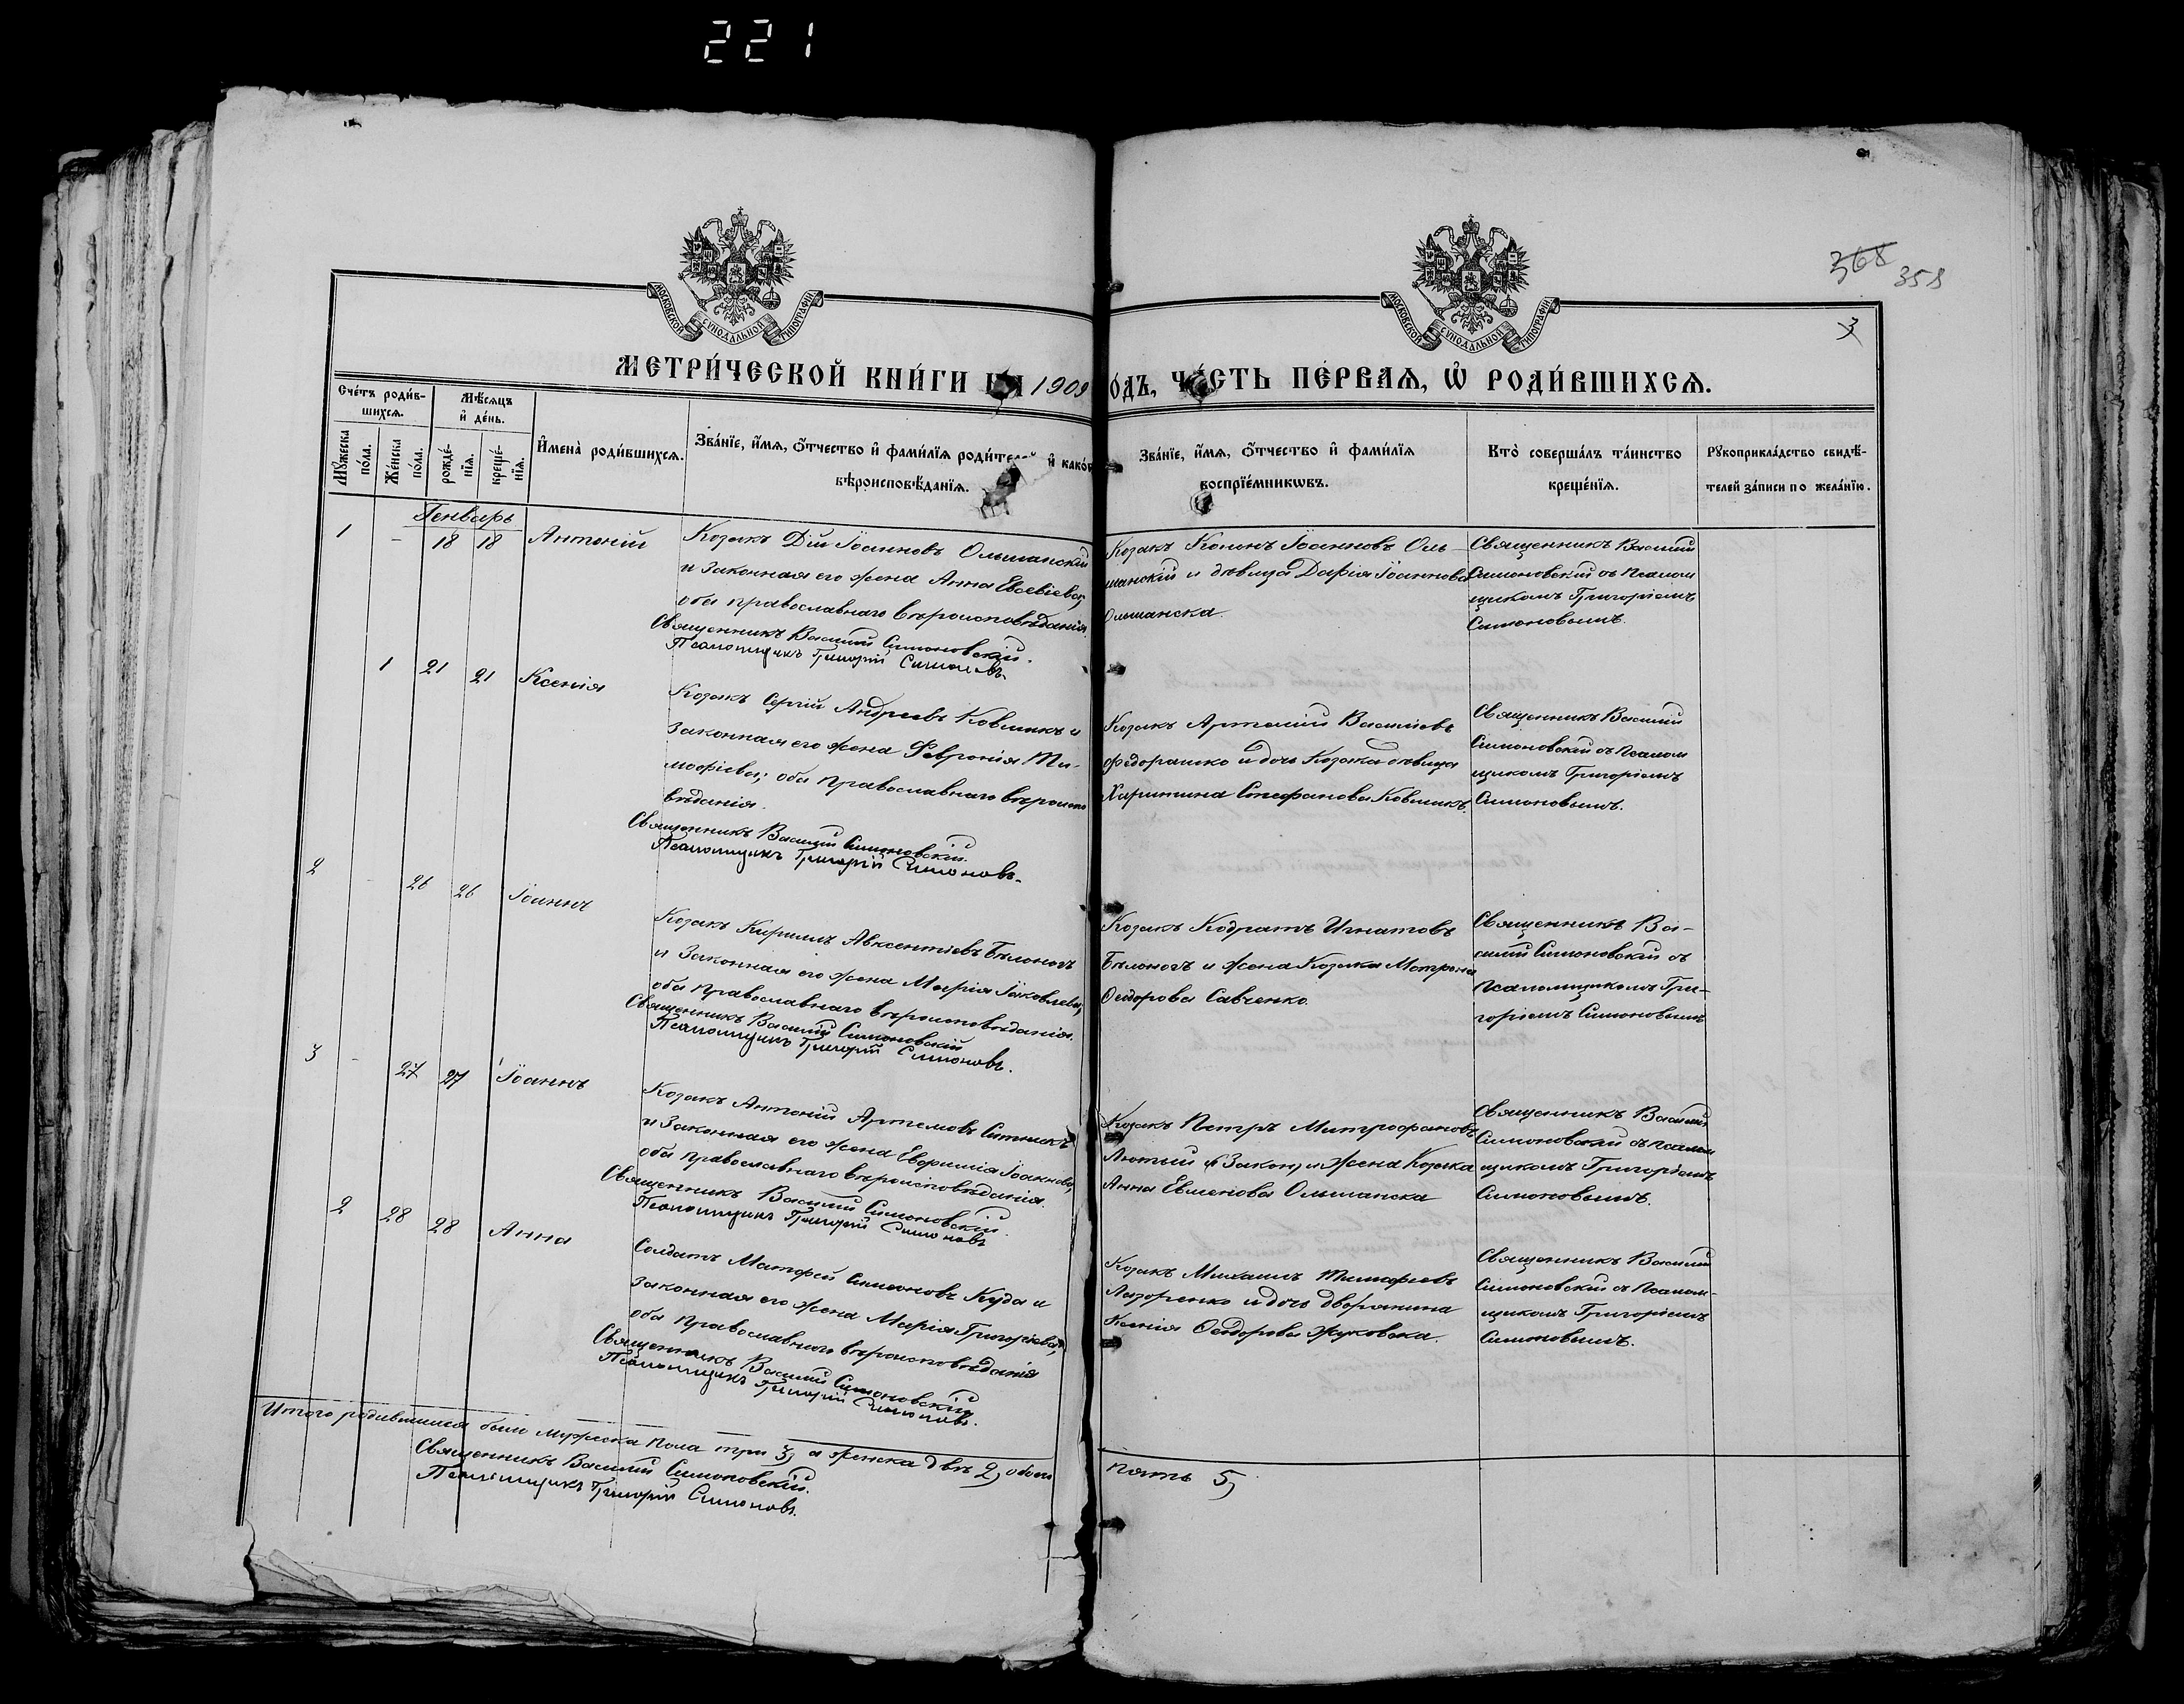 221
368 358
3
МОСКОВСКОЙ СУНОДАЛЬНОЙ ТИПОГРАФІИ
МОСКОВСКОЙ СУНОДАЛЬНОЙ ТИПОГРАФІИ
МЕТРИ́ЧЕСКОЙ КНИ́ГИ НА 1909 ГО́ДЪ, ЧА́СТЬ ПЕ́РВАѦ, Ѡ҆ РОДИ́ВШИХСѦ.
Сче́тъ роди́в-
шихсѧ.
Мѣ́сѧцъ
и҆ де́нь.
Мꙋ́жеска
по́ла.
Же́нска
по́ла.
рожде́-
нїѧ.
креще́-
нїѧ.
И҆мена̀ роди́вшихсѧ.
Зва́нїе, и҆́мѧ, ѻ҆́тчество и҆ фами́лїѧ роди́телей и҆ како́
вѣроисповѣ́данїѧ.
Зва́нїе, и҆́мѧ, ѻ҆́тчество и҆ фами́лїѧ
воспрїе́мникѡвъ.
Кто̀ соверша́лъ та́инство
креще́нїѧ.
Рꙋкоприкла́дство свидѣ́-
телей за́писи по жела́нїю.
Генварь
1 - 18 18 Антоній
Козакъ Дій Іоанновъ Ольшанскій
и законная его жена Анна Евсевіева,
оба православнаго вѣроисповѣданія
Священникъ Василій Симоновскій.
Псаломщикъ Григорій Симоновъ.
Козакъ Кононъ Іоанновъ Оль-
шанскій и дѣвица Дарія Іоаннова
Ольшанска.
Священникъ Василій
Симоновскій съ псалом
щикомъ Григоріемъ
Симоновымъ.
1 21 21 Ксенія
Козакъ Сергій Андреевъ Ковликъ и
законная его жена Февронія Ти-
мофіева; оба православнаго вѣроиспо
вѣданія.
Священникъ Василій Симоновскій.
Псаломщикъ Григорій Симоновъ.
Козакъ Артемій Василіевъ
Федорашко и дочь Козака дѣвица
Харитина Стефанова Ковликъ.
Священникъ Василій
Симоновскій съ псалом
щикомъ Григоріемъ
Симоновымъ.
2 - 26 26 Іоаннъ
Козакъ Кириллъ Авксентіевъ Бѣлоногъ
и законная его жена Марія Іаковлева,
оба православнаго вѣроисповѣданія.
Священникъ Василій Симоновскій
Псаломщикъ Григорій Симоновъ.
Козакъ Кодратъ Игнатовъ
Бѣлоногъ и жена Козака Матрона
Ѳеодорова Савченко
Священникъ Ва-
силій Симоновскій съ
псаломщикомъ Гри-
горіемъ Симоновымъ
3 - 27 27 Іоаннъ
Козакъ Антоній Артемовъ Ситникъ
и законная его жена Евфимія Іоаннова,
оба православнаго вѣроисповѣданія.
Священникъ Василій Симоновскій.
Псаломщикъ Григорій Симоновъ
Козакъ Петръ Митрофановъ
Лютый и жена Козака
Анна Евменова Ольшанска
Священникъ Василій
Симоновскій съ псалом
щикомъ Григоріемъ
Симоновымъ.
2 28 28 Анна
Солдатъ Матфей Симеоновъ Куда и
законная его жена Марія Григоріева,
оба православнаго вѣроисповѣданія
Священникъ Василій Симоновскій
Псаломщикъ Григорій Симоновъ.
Козакъ Михаилъ Тимофеевъ
Лазоренко и дочь дворянина
Ксенія Ѳеодорова Жуковска.
Священникъ Василій
Симоновскій съ псалом-
щикомъ Григоріемъ
Симоновымъ.
Итого родившихся было мужеска пола три 3, а женска двѣ 2, обоего
пять 5,
Священникъ Василій Симоновскій.
Псаломщикъ Григорій Симоновъ.